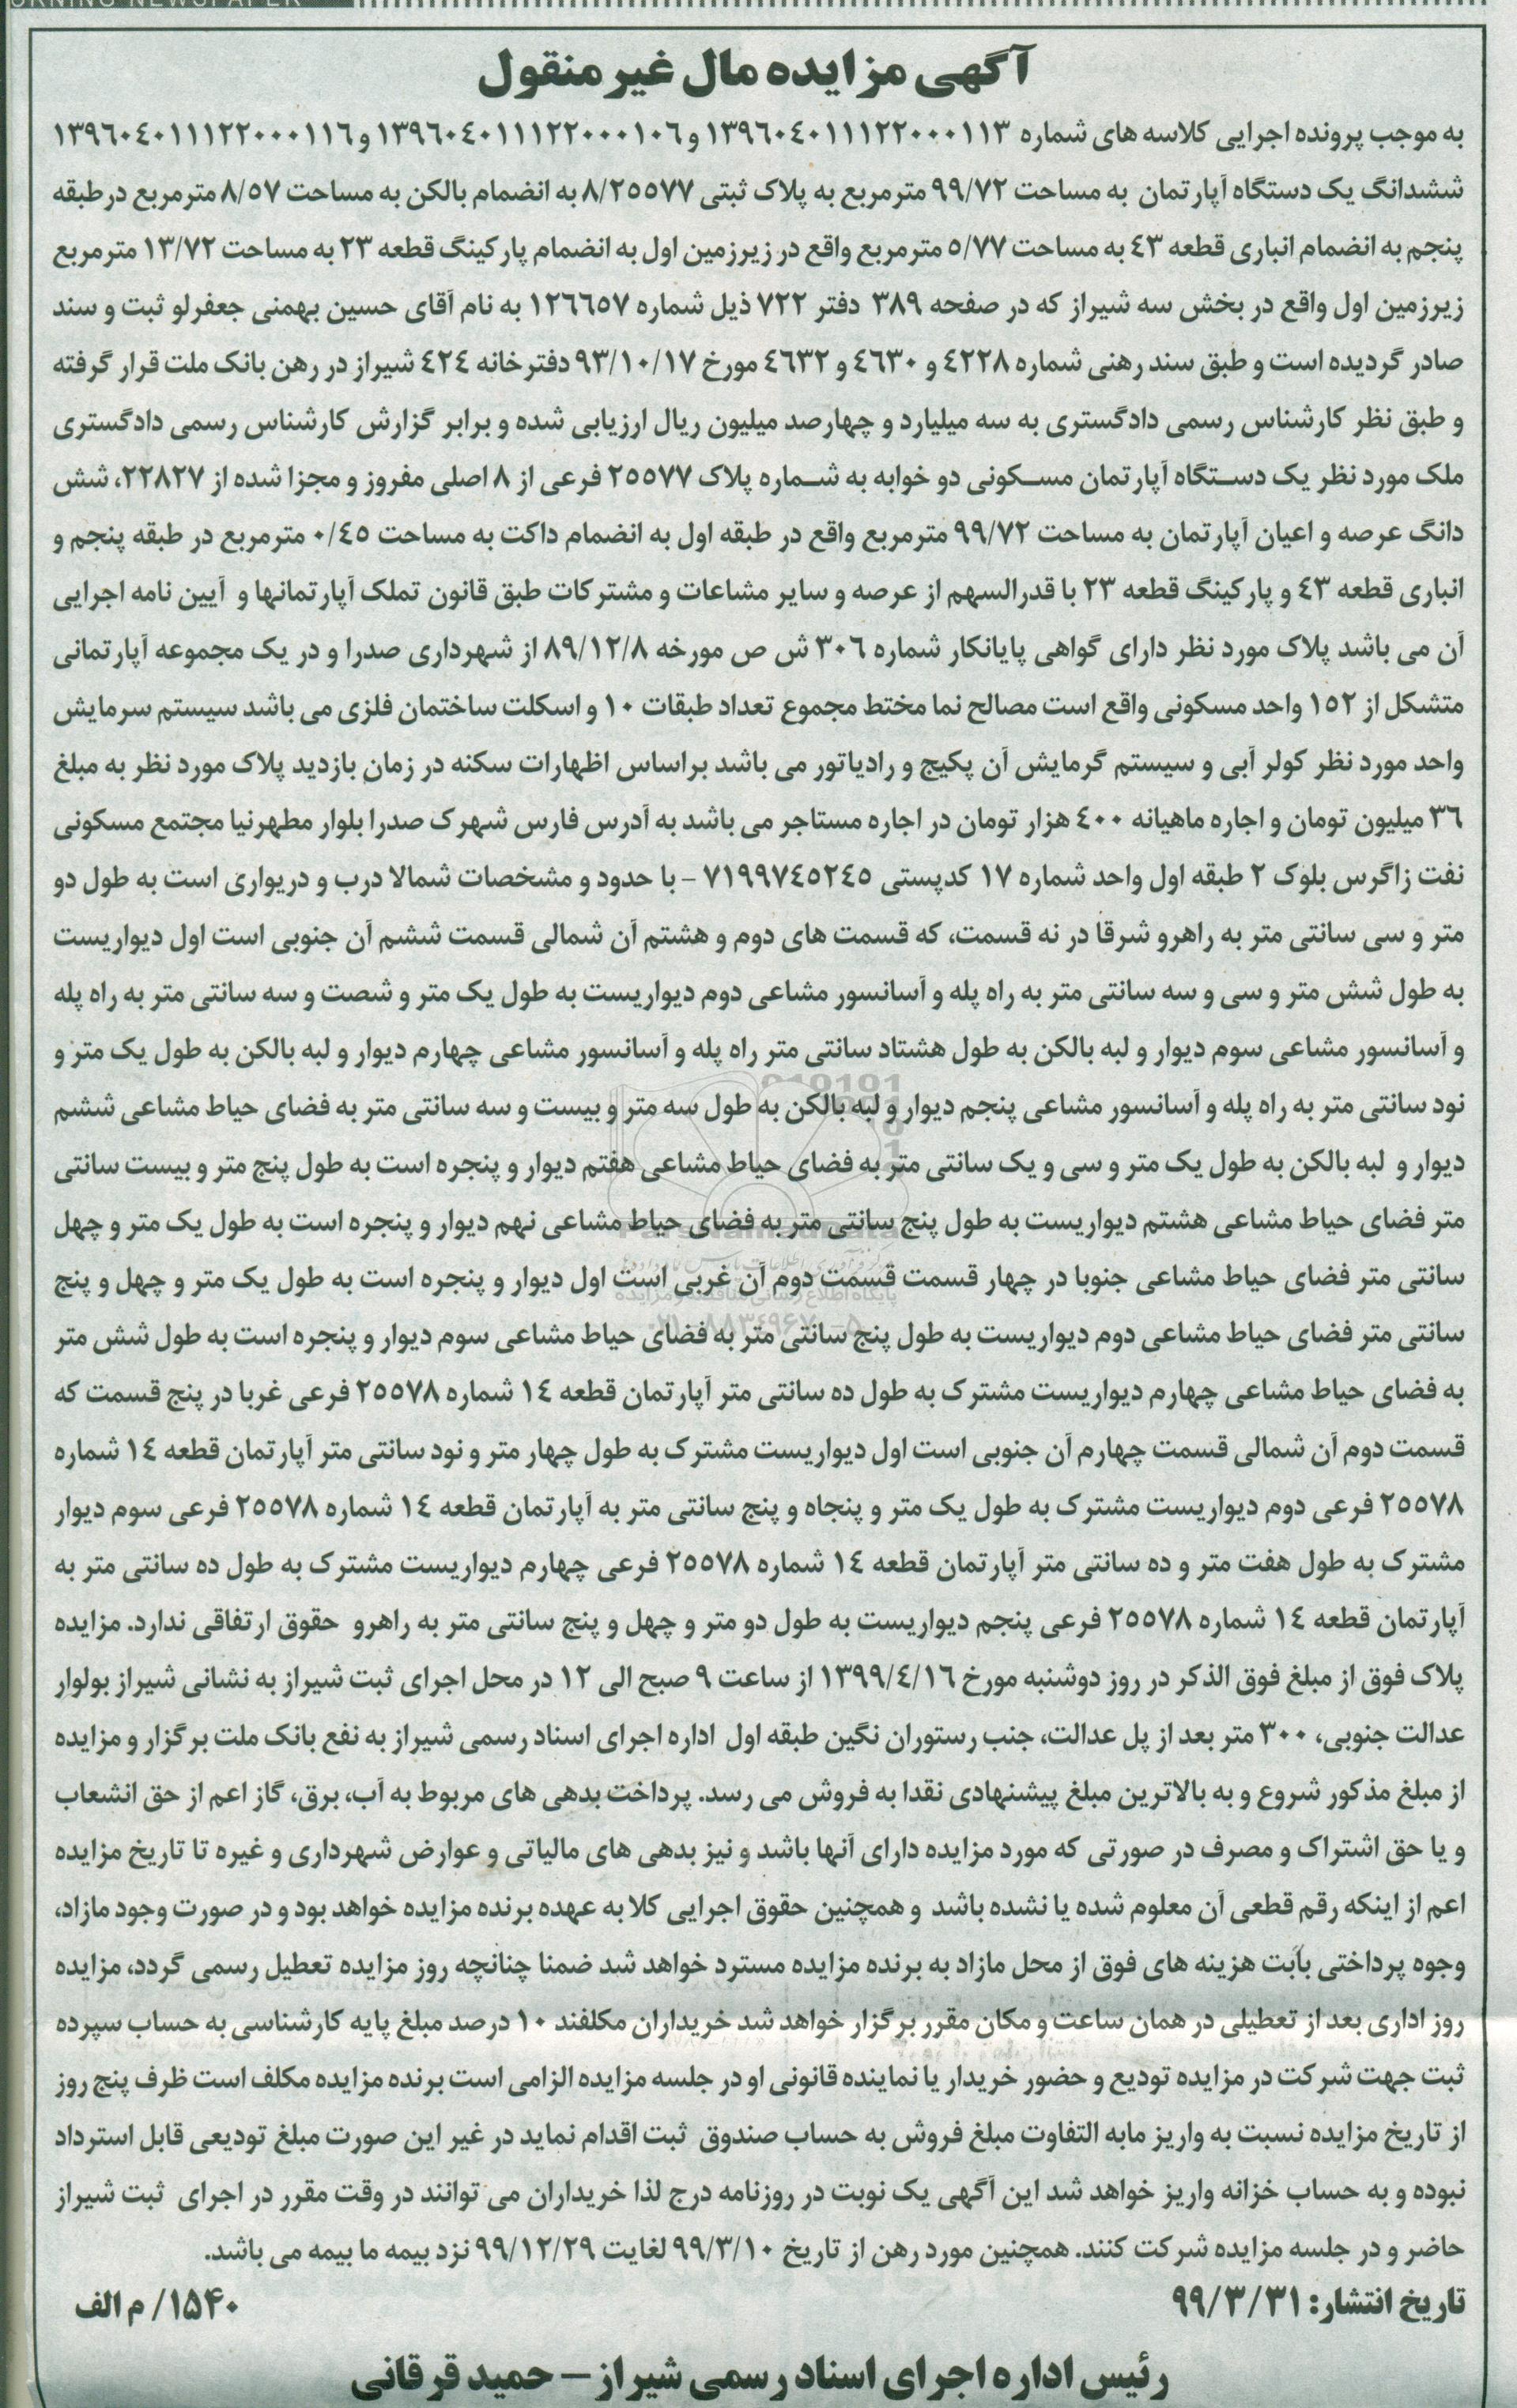 ORNING NEWSPAPER
آگهی مزایده مال غیر منقول
به موجب پرونده اجرایی کلاسه های شماره ۱۳۹۶۰٤۰۱۱۱۲۲۰۰۰۱۱۳ و ۱۳۹٦۰٤۰۱۱۱۲۲۰۰۰۱۰٦ و ۱۳۹٦۰٤۰۱۱۱۲۲۰۰۰۱۱٦
ششدانگ یک دستگاه آپارتمان به مساحت ۹۹/۷۲ مترمربع به پلاک ثبتی ۸/۲۵۵۷۷ به انضمام بالکن به مساحت ۸/۵۷ مترمربع درطبقه
پنجم به انضمام انباری قطعه ٤۳ به مساحت ۵/۷۷ مترمربع واقع در زیرزمین اول به انضمام پارکینگ قطعه ۲۳ به مساحت ۱۳/۷۲ مترمربع
زیرزمین اول واقع در بخش سه شیراز که در صفحه ۳۸۹ دفتر ۷۲۲ ذیل شماره ۱۲٦٦۵۷ به نام آقای حسین بهمنی جعفرلو ثبت و سند
صادر گردیده است و طبق سند رهنی شماره ٤۲۲۸ و ٤٦۳۰ و ٤٦۳۲ مورخ ۹۳/۱۰/۱۷ دفترخانه ٤۲٤ شیراز در رهن بانک ملت قرار گرفته
و طبق نظر کارشناس رسمی دادگستری به سه میلیارد و چهارصد میلیون ریال ارزیابی شده و برابر گزارش کارشناس رسمی دادگستری
ملک مورد نظر یک دستگاه آپارتمان مسکونی دو خوابه به شماره پلاک ۲۵۵۷۷ فرعی از ۸ اصلی مفروز و مجزا شده از ۲۲۸۲۷، شش
دانگ عرصه و اعیان آپارتمان به مساحت ۹۹/۷۲ مترمربع واقع در طبقه اول به انضمام داکت به مساحت ۰/٤۵ مترمربع در طبقه پنجم و
انباری قطعه ٤۳ و پارکینگ قطعه ۲۳ با قدرالسهم از عرصه و سایر مشاعات و مشترکات طبق قانون تملک آپارتمانها و آیین نامه اجرایی
آن می باشد پلاک مورد نظر دارای گواهی پایانکار شماره ۳۰٦ ش ص مورخه ۸۹/۱۲/۸ از شهرداری صدرا و در یک مجموعه آپارتمانی
متشکل از ۱۵۲ واحد مسکونی واقع است مصالح نما مختط مجموع تعداد طبقات ۱۰ و اسکلت ساختمان فلزی می باشد سیستم سرمایش
واحد مورد نظر کولر آبی و سیستم گرمایش آن پکیج و رادیاتور می باشد براساس اظهارات سکنه در زمان بازدید پلاک مورد نظر به مبلغ
۳٦ میلیون تومان و اجاره ماهیانه ٤۰۰ هزار تومان در اجاره مستاجر می باشد به آدرس فارس شهرک صدرا بلوار مطهرنیا مجتمع مسکونی
نفت زاگرس بلوک ۲ طبقه اول واحد شماره ۱۷ کدپستی ۷۱۹۹۷٤۵۲٤۵ – با حدود و مشخصات شمالا درب و دریواری است به طول دو
متر و سی سانتی متر به راهرو شرقا در نه قسمت، که قسمت های دوم و هشتم آن شمالی قسمت ششم آن جنوبی است اول دیواریست
به طول شش متر و سی و سه سانتی متر به راه پله و آسانسور مشاعی دوم دیواریست به طول یک متر و شصت و سه سانتی متر به راه پله
و آسانسور مشاعی سوم دیوار و لبه بالکن به طول هشتاد سانتی متر راه پله و آسانسور مشاعی چهارم دیوار و لبه بالکن به طول یک متر و
نود سانتی متر به راه پله و آسانسور مشاعی پنجم دیوار و لبه بالکن به طول سه متر و بیست و سه سانتی متر به فضای حیاط مشاعی ششم
دیوار و لبه بالکن به طول یک متر و سی و یک سانتی متر به فضای حیاط مشاعی هفتم دیوار و پنجره است به طول پنج متر و بیست سانتی
متر فضای حیاط مشاعی هشتم دیواریست به طول پنج سانتی متر به فضای حیاط مشاعی نهم دیوار و پنجره است به طول یک متر و چهل
سانتی متر فضای حیاط مشاعی جنوبا در چهار قسمت قسمت دوم آن غربی است اول دیوار و پنجره است به طول یک متر و چهل و پنج
سانتی متر فضای حیاط مشاعی دوم دیواریست به طول پنج سانتی متر به فضای حیاط مشاعی سوم دیوار و پنجره است به طول شش متر
به فضای حیاط مشاعی چهارم دیواریست مشترک به طول ده سانتی متر آپارتمان قطعه ۱٤ شماره ۲۵۵۷۸ فرعی غربا در پنج قسمت که
قسمت دوم آن شمالی قسمت چهارم آن جنوبی است اول دیواریست مشترک به طول چهار متر و نود سانتی متر آپارتمان قطعه ۱٤ شماره
۲۵۵۷۸ فرعی دوم دیواریست مشترک به طول یک متر و پنجاه و پنج سانتی متر به آپارتمان قطعه ۱٤ شماره ۲۵۵۷۸ فرعی سوم دیوار
مشترک به طول هفت متر و ده سانتی متر آپارتمان قطعه ۱٤ شماره ۲۵۵۷۸ فرعی چهارم دیواریست مشترک به طول ده سانتی متر به
آپارتمان قطعه ۱٤ شماره ۲۵۵۷۸ فرعی پنجم دیواریست به طول دو متر و چهل و پنج سانتی متر به راهرو حقوق ارتفاقی ندارد. مزایده
پلاک فوق از مبلغ فوق الذکر در روز دوشنبه مورخ ۱۳۹۹/٤/۱٦ از ساعت ۹ صبح الی ۱۲ در محل اجرای ثبت شیراز به نشانی شیراز بولوار
عدالت جنوبی، ۳۰۰ متر بعد از پل عدالت، جنب رستوران نگین طبقه اول اداره اجرای اسناد رسمی شیراز به نفع بانک ملت برگزار و مزایده
از مبلغ مذکور شروع و به بالاترین مبلغ پیشنهادی نقدا به فروش می رسد. پرداخت بدهی های مربوط به آب، برق، گاز اعم از حق انشعاب
و یا حق اشتراک و مصرف در صورتی که مورد مزایده دارای آنها باشد و نیز بدهی های مالیاتی و عوارض شهرداری و غیره تا تاریخ مزایده
اعم از اینکه رقم قطعی آن معلوم شده یا نشده باشد و همچنین حقوق اجرایی کلا به عهده برنده مزایده خواهد بود و در صورت وجود مازاد،
وجوه پرداختی بابت هزینه های فوق از محل مازاد به برنده مزایده مسترد خواهد شد ضمنا چنانچه روز مزایده تعطیل رسمی گردد، مزایده
روز اداری بعد از تعطیلی در همان ساعت و مکان مقرر برگزار خواهد شد خریداران مکلفند ۱۰ درصد مبلغ پایه کارشناسی به حساب سپرده
ثبت جهت شرکت در مزایده تودیع و حضور خریدار یا نماینده قانونی او در جلسه مزایده الزامی است برنده مزایده مکلف است ظرف پنج روز
از تاریخ مزایده نسبت به واریز مابه التفاوت مبلغ فروش به حساب صندوق ثبت اقدام نماید در غیر این صورت مبلغ تودیعی قابل استرداد
نبوده و به حساب خزانه واریز خواهد شد این آگهی یک نوبت در روزنامه درج لذا خریداران می توانند در وقت مقرر در اجرای ثبت شیراز
حاضر و در جلسه مزایده شرکت کنند. همچنین مورد رهن از تاریخ ۹۹/۳/۱۰ لغایت ۹۹/۱۲/۲۹ نزد بیمه ما بیمه می باشد.
تاریخ انتشار: ۹۹/۳/۳۱
۱۵۴۰/ م الف
رئیس اداره اجرای اسناد رسمی شیراز – حمید قرقانی